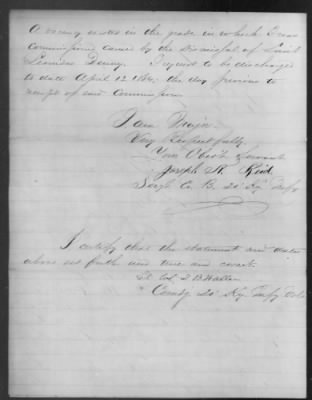 A vacancy exists in the grade in which I was
Commissioned caused by the Dismissal of Lieut
Leonidas Denny. I request to be discharged
to date April 12 the day previous to
receipt of said Commission
I am Major
Very Respectfully
Your Obedt Servant
Joseph R. Reid
Sergt Co. B. 20" Ky. Infy
I certify that the statement and dates
above set forth are true and correct
Lt Col. T. B. Waller
Comdg 20" Ky Infy Vols